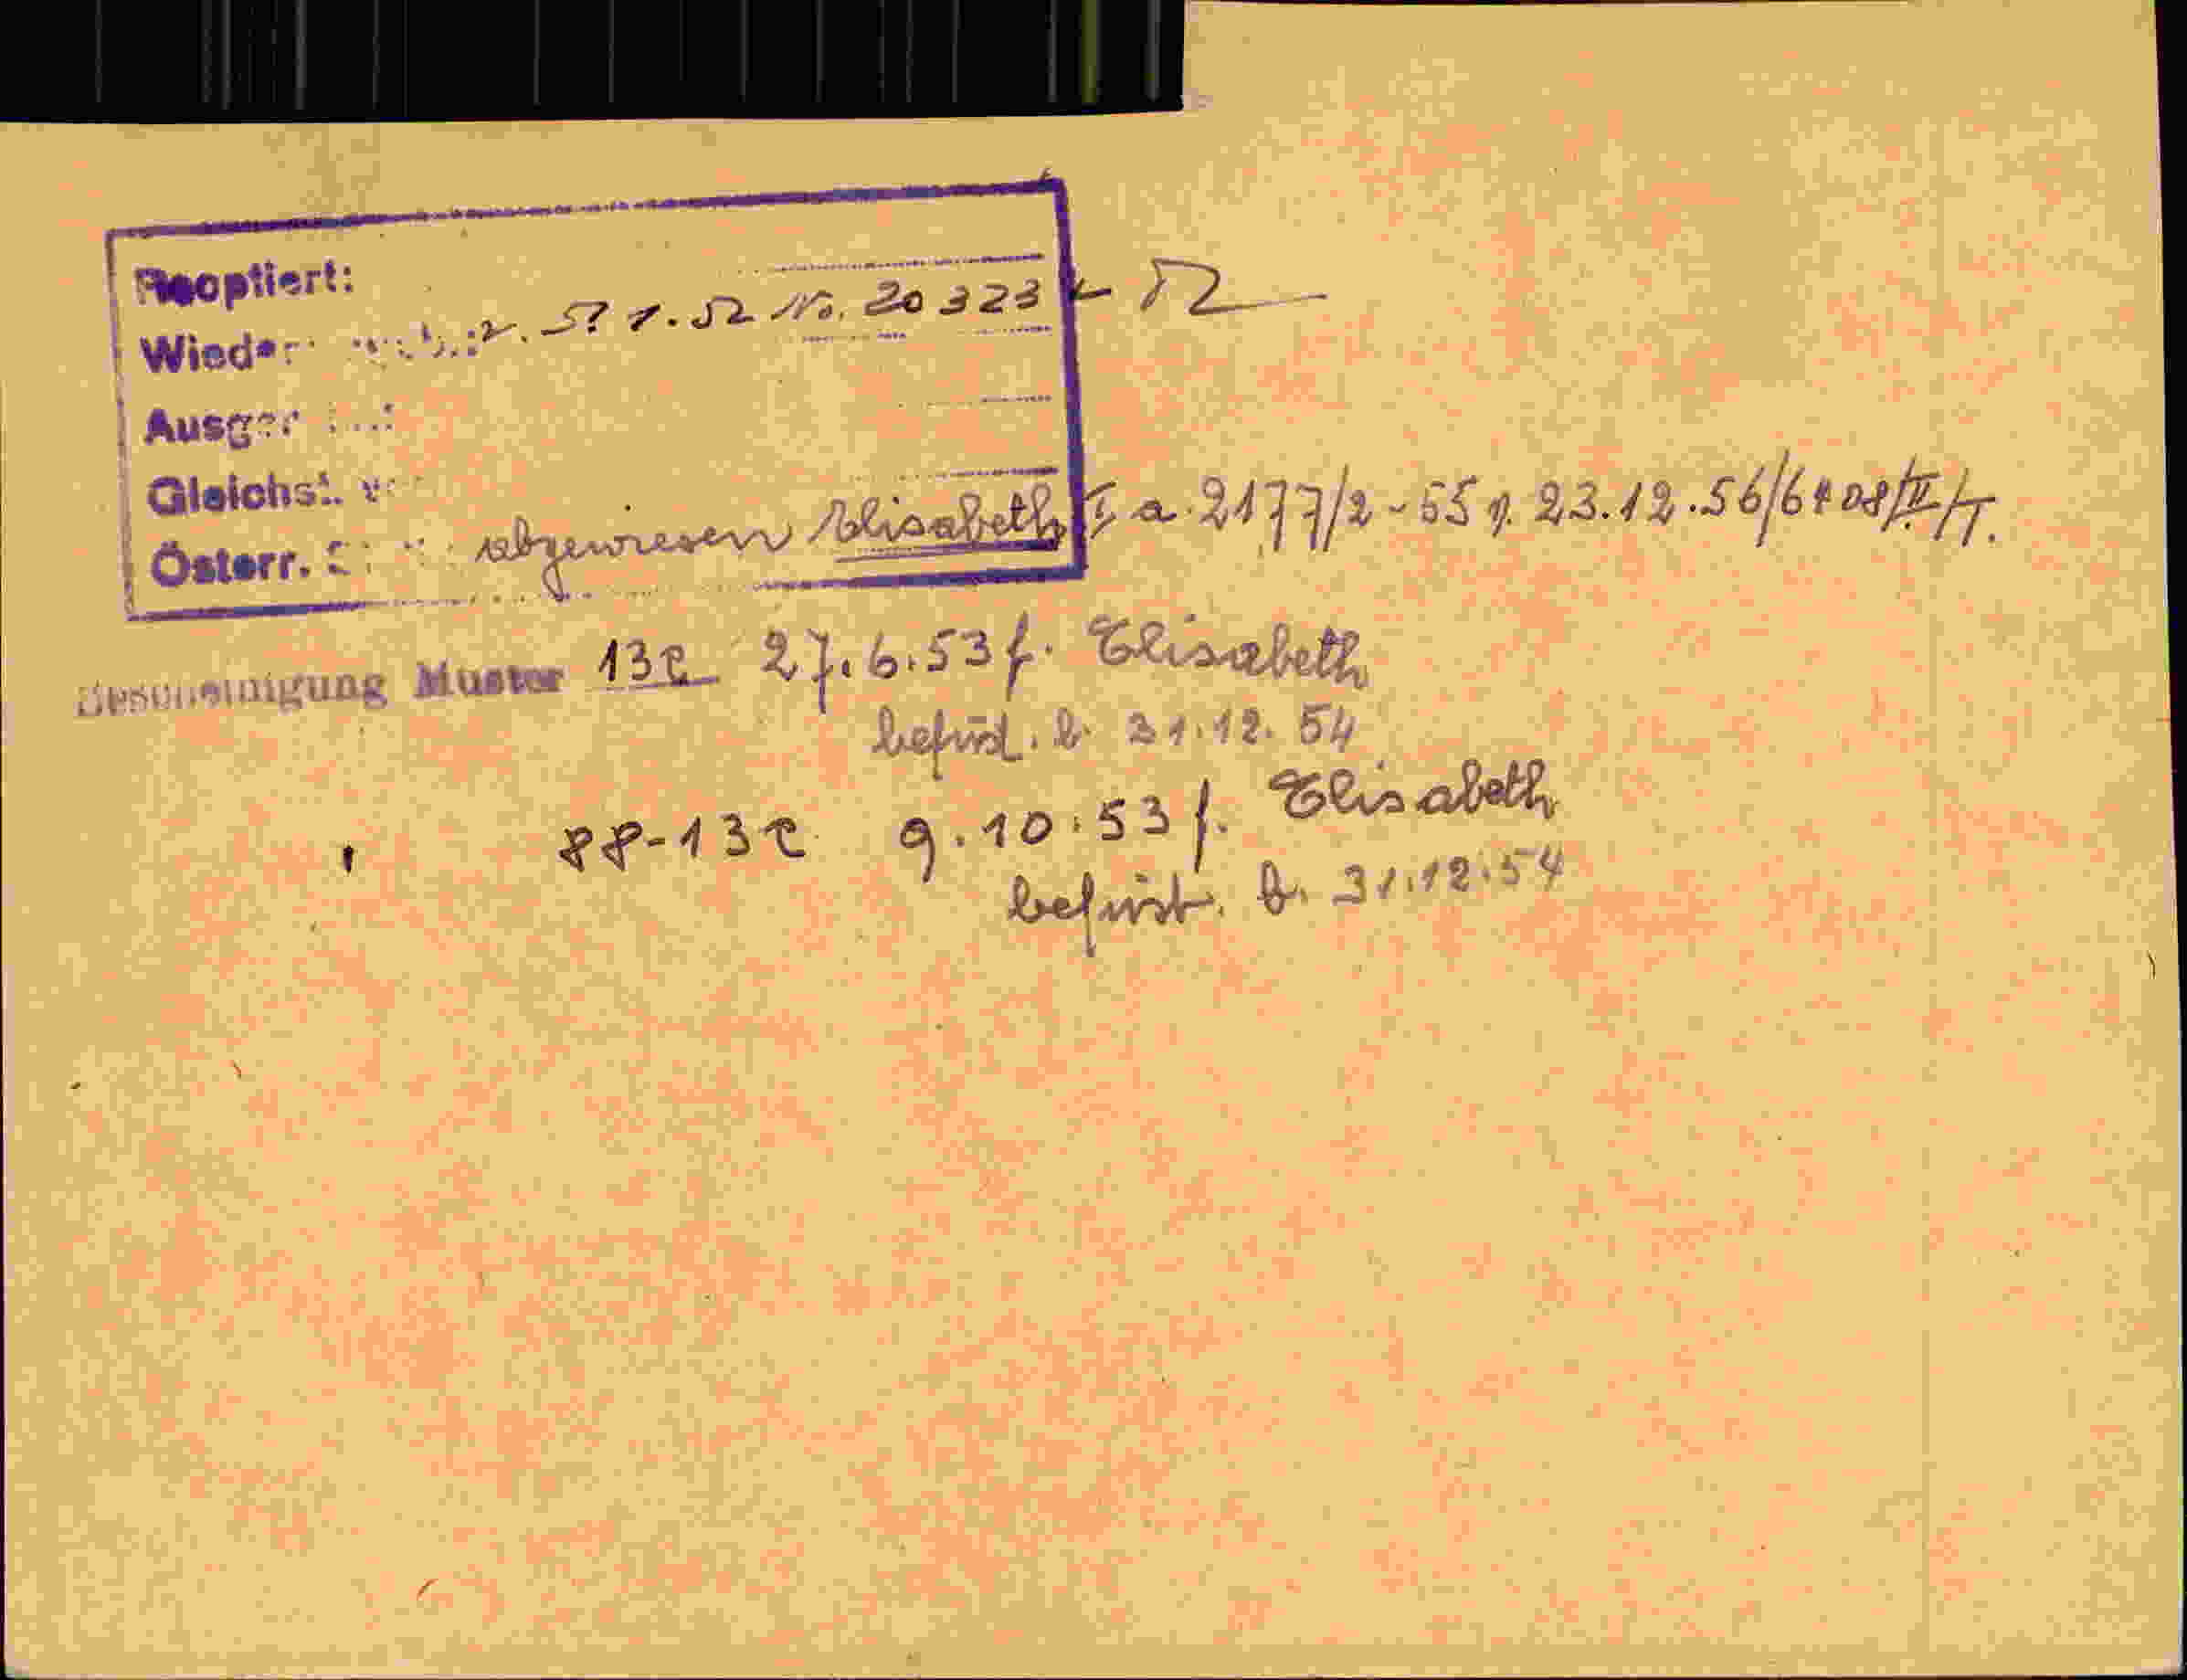 Reoptiert:
1.52 No. 20 323 - 52
Gleichst.
Österr. abgewiesen Elisabeth I a. 2177/2-55 v. 23.12.56/6408/II/I.
Bescheinigung Muster 13e 27.6.53 f. Elisabeth
befrist. b. 31.12.54
88-13e 9.10.53 f. Elisabeth
befrist. b. 31.12.54